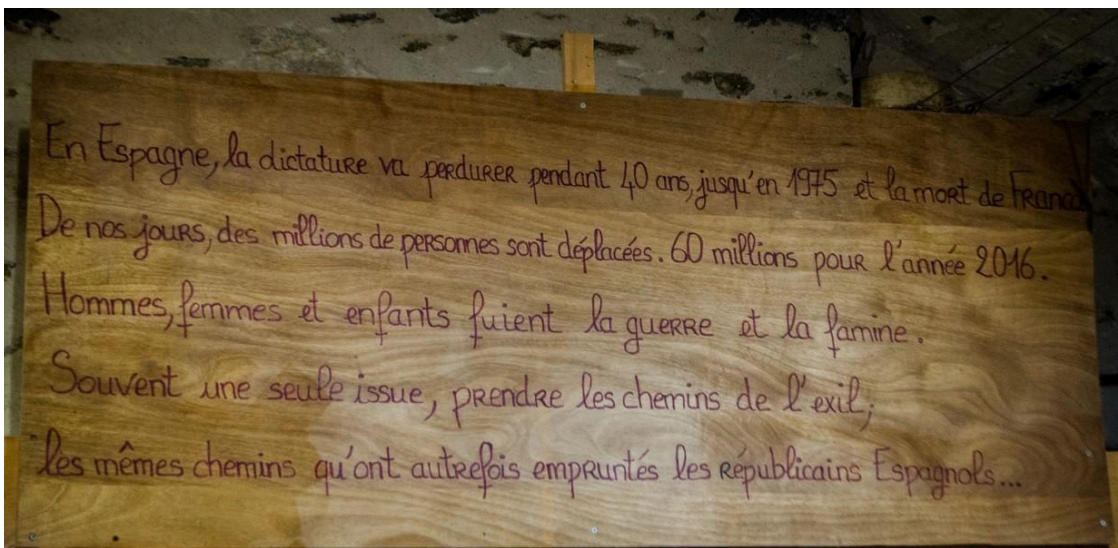 En Espagne, la dictature va perdurer pendant 40 ans, jusqu'en 1975 et la mort de Franco
De nos jours, des millions de personnes sont déplacées. 60 millions pour l'année 2016.
Hommes, femmes et enfants fuient la guerre et la famine.
Souvent une seule issue, prendre les chemins de l'exil;
les mêmes chemins qu'ont autrefois empruntés les républicains Espagnols...